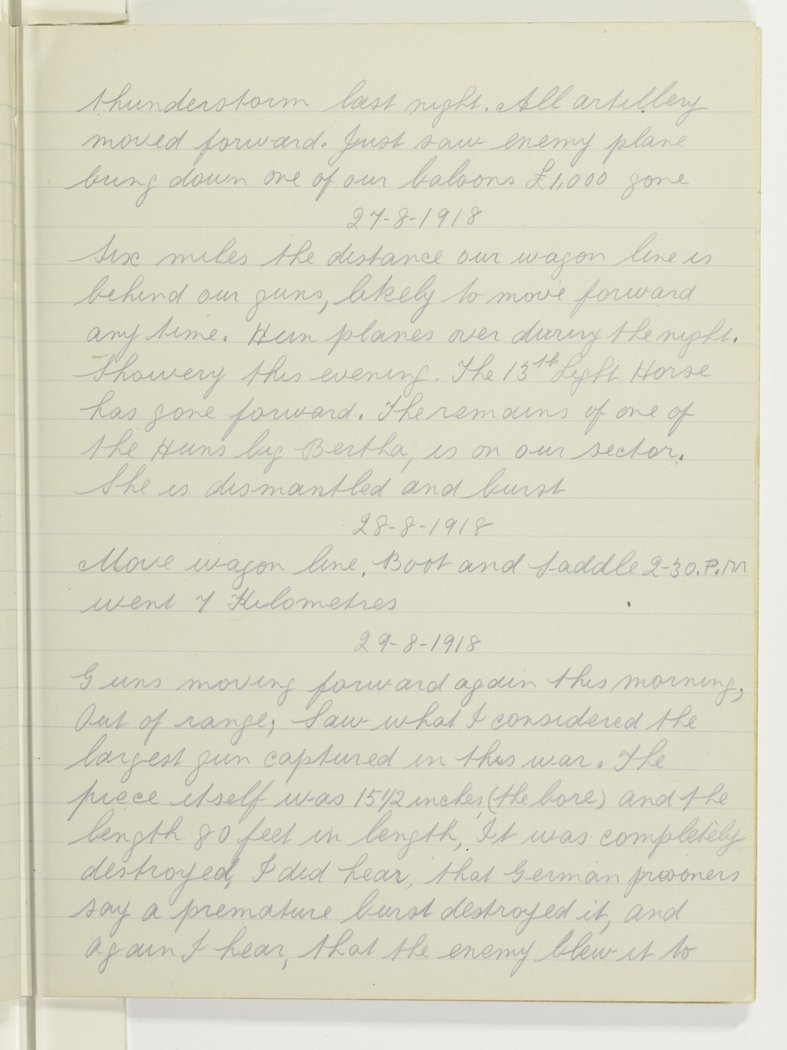 thunderstorm last night. All artillery
moved forward. Just saw enemy plane
bring down one of our baloons £1,000 gone
27-8-1918
Six miles the distance our wagon line is
behind our guns, likely to move forward
any time. Hun planes over during the night.
Showery this evening. The 13th Light Horse
has gone forward. The remains of one of
the Huns big Bertha, is on our sector.
She is dismantled and burst
28-8-1918
Move wagon line. Boot and Saddle 2-30.P.M
went 7 Kilometres
29-8-1918
Guns moving forward again this morning,
Out of range; Saw what I considered the
largest gun captured in this war. The
piece itself was 15 1/2 inches (the bore) and the
length 80 feet in length, It was completely
destroyed, I did hear, that German prisoners
say a premature burst destroyed it, and
again I hear, that the enemy blew it to